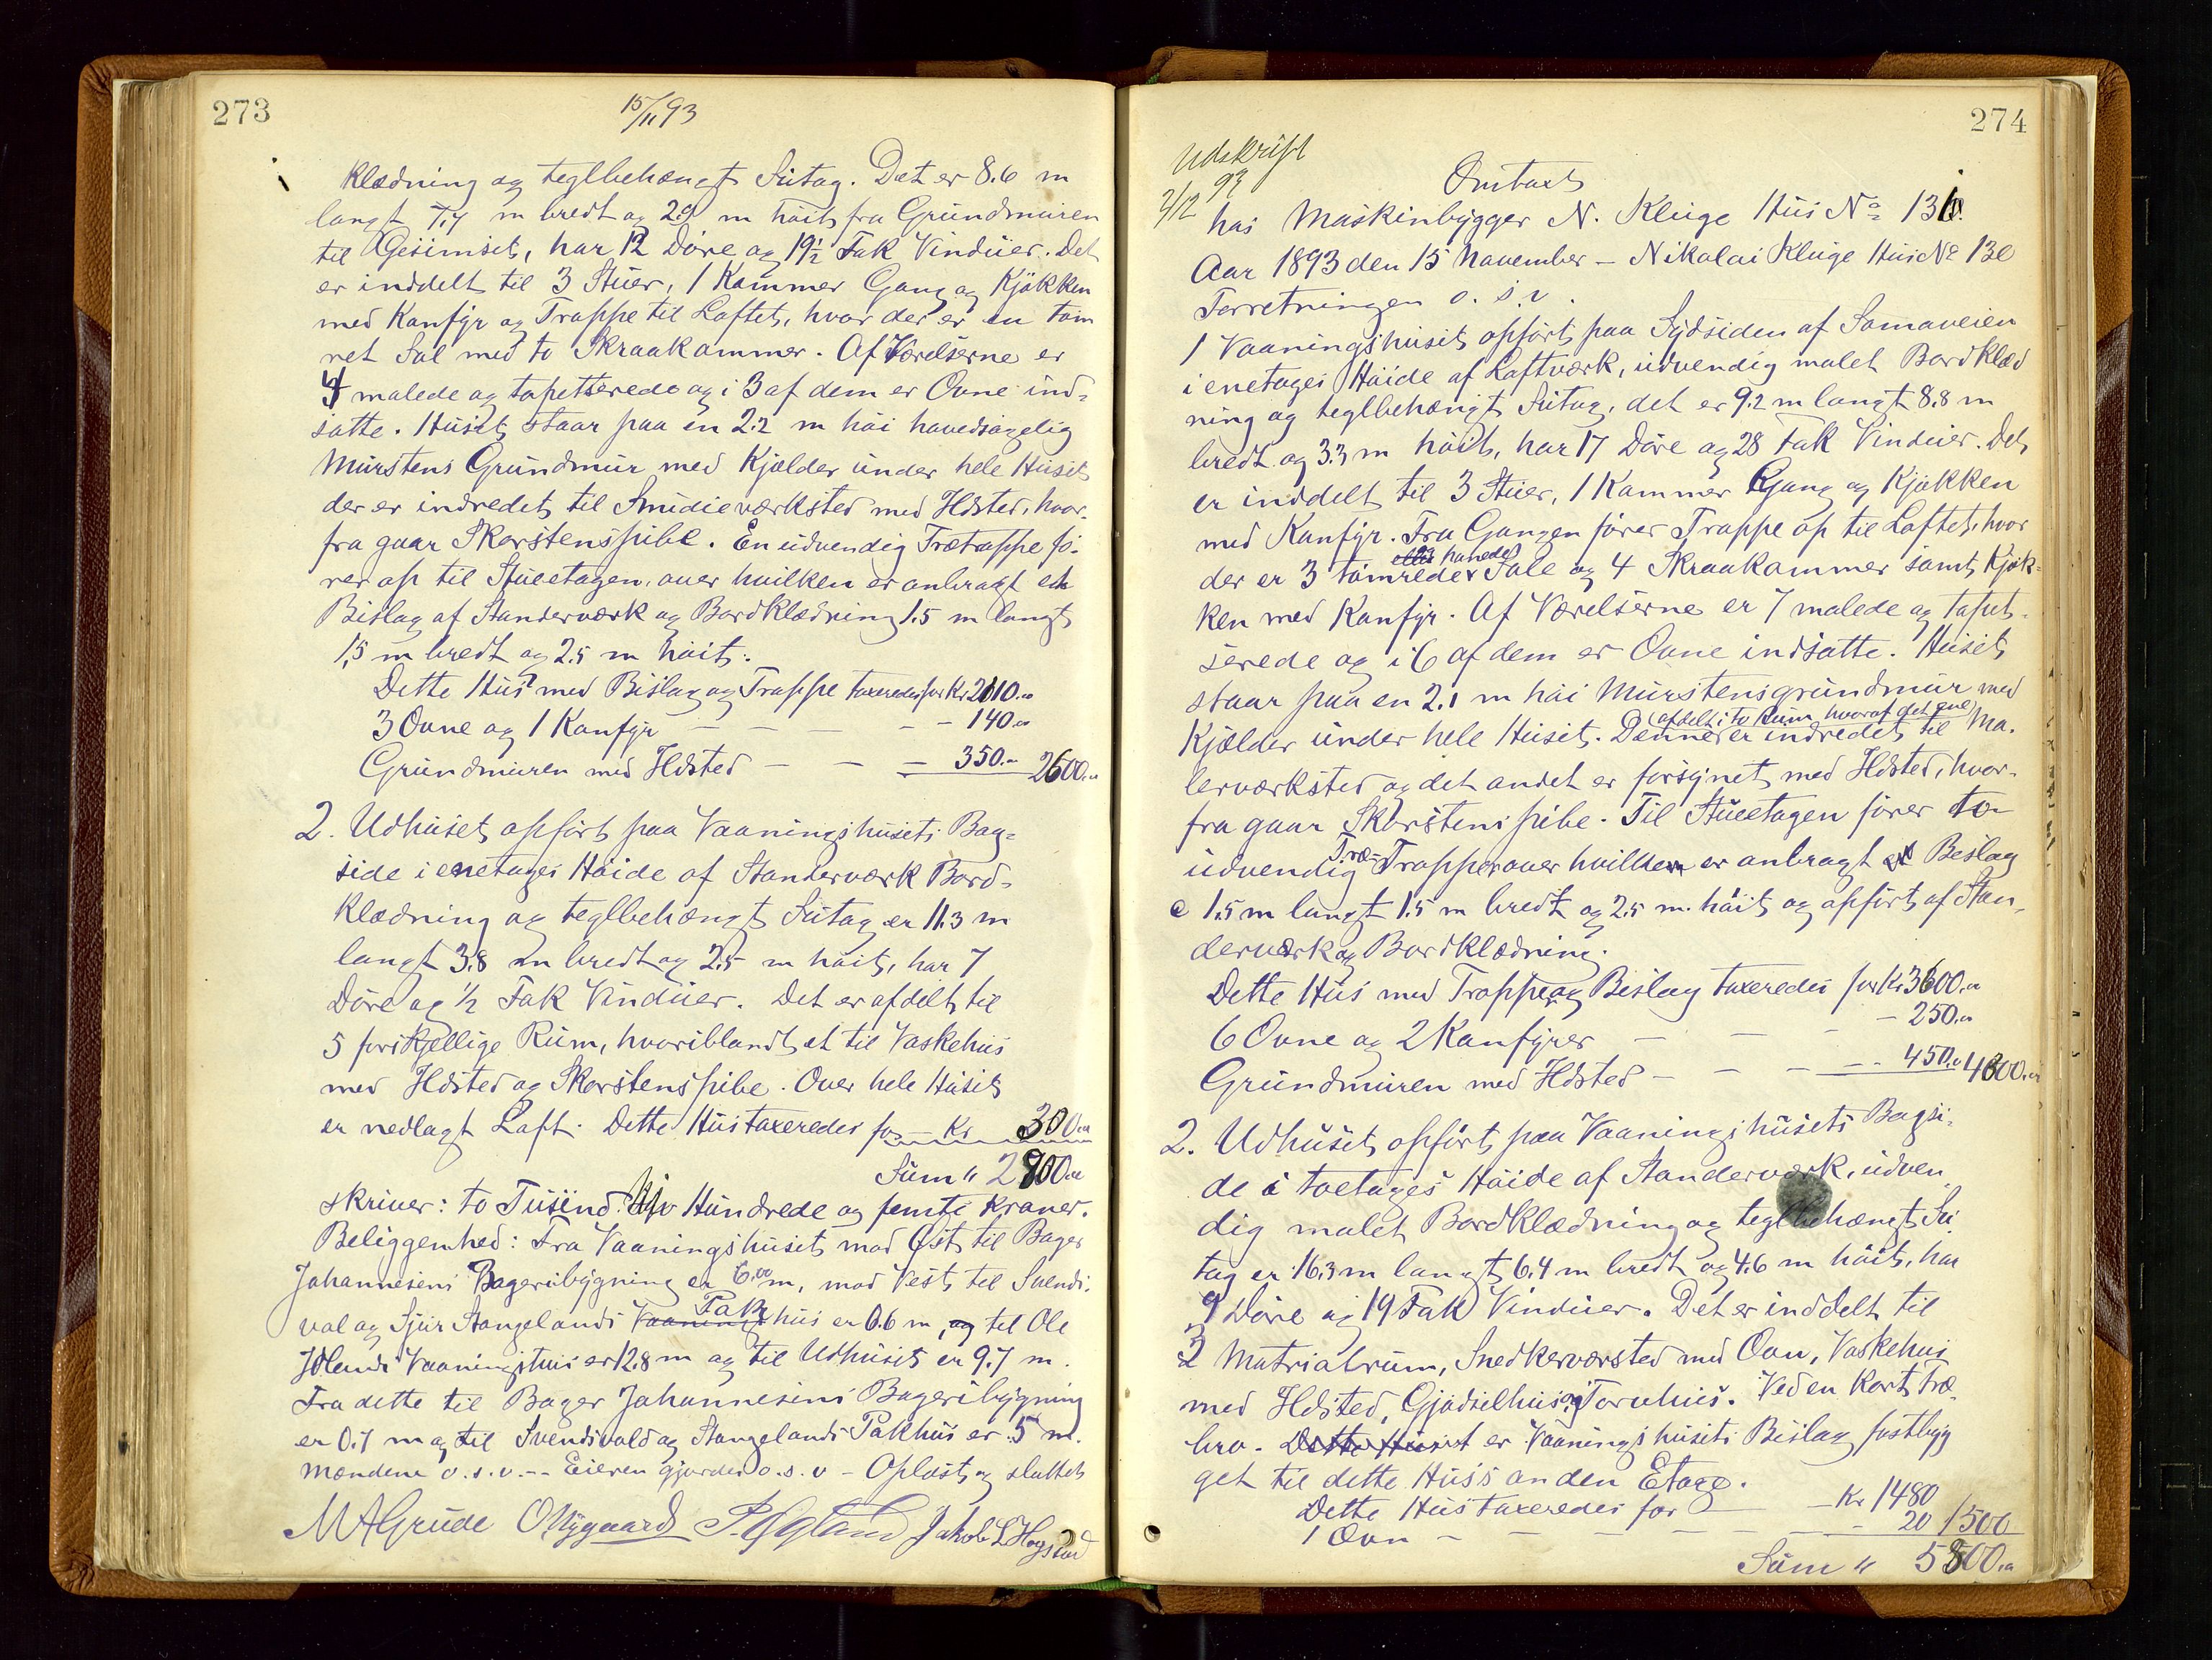 273
15/11 93
Klædning og teglbehængt Sutag. Det er 8.6 m
langt 7,7 m bredt og 2.9 m høit fra Grundmuren
til Gesimset, har 12 Døre og 19½ Fak Vinduer. Det
er inddelt til 3 Stuer, 1 Kammer Gang og Kjøkken
med Komfyr og Trappe til Loftet, hvor der er en tøm
ret Sal med to Skraakammer. Af Værelserne er
4 malede og tapetserede og i 3 af dem er Ovne ind-
satte. Huset staar paa en 2.2 m høi hovedsagelig
Murstens Grundmur med Kjælder under hele Huset
der er indredet til Smidieværksted med Ildsted, hvor-
fra gaar Skorstenspibe. En udvendig Trætrappe fø-
rer op til Stueetagen, over hvilken er anbragt et
Bislag af Standerværk og Bordklædning 1.5 m langt
1,5 m bredt og 2.5 m høit.
Dette Hus med Bislag og Trappe taxeredes for Kr 2110.00
3 Ovne og 1 Komfyr — — — — 140.00
Grundmuren med Ildsted — — — 350.00 2600.00
2. Udhuset opført paa Vaaningshusets Bag-
side i enetages Høide af Standerværk Bord-
klædning og teglbehængt Sutag er 11.3 m
langt 3.8 m bredt og 2.5 m høit, har 7
Døre og ½ Fak Vinduer. Det er afdelt til
5 forskjellige Rum, hvoriblandt et til Vaskehus
med Ildsted og Skorstenspibe. Over hele Huset
er nedlagt Loft. Dette Hus taxeredes for — Kr 300.00
Sum " 2900.00
skriver: to Tusind Ni Hundrede og femti Kroner.
Beliggenhed: Fra Vaaningshuset mod Øst til Bager
Johannesens Bageribygning er 6.00 m, mod Vest til Svends-
vol og Sjur Stangelands Vaanings Pakhus er 0.6 m, og til Ole
Idlands Vaaningshus er 12.8 m og til Udhuset er 9.7 m.
Fra dette til Bager Johannesens Bageribygning
er 0.7 m og til Svendsvold og Stangelands Pakhus er .5 m.
Mændene o.s.v. -- Eieren gjordes o.s.v - Oplæst og sluttet
M A Grude O Nygaard Jakob L Hogstad
274
Udskrift
2/12 93
Omtaxt
hos Maskinbygger N. Kluge Hus No 13
Aar 1893 den 15 November — Nikolai Kluge Hus No 13e
Forretningen o.s.v.
1 Vaaningshuset opført paa Sydsiden af Somaveien
i enetages Høide af Loftværk, udvendig malet Bordklæd
ning og teglbehængt Sutag, det er 9.2 m langt 8.8 m
bredt og 3.3 m høit, har 17 Døre og 28 Fak Vinduer. Det
er inddelt til 3 Stuer, 1 Kammer Gang og Kjøkken
med Komfyr. Fra Gangen fører Trappe op til Loftet, hvor
der er 3 tømrede Sale og 4 Skraakammer samt Kjøk-
ken med Komfyr. Af Værelserne er 7 malede og tapet-
serede og i 6 af dem er Ovne indsatte. Huset
staar paa en 2.1 m høi Murstensgrundmur med
(afdelt i to Rum, hvoraf det ene
Kjælder under hele Huset. Denne er indredet til Ma-
lerværksted og det andet er forsynet med Ildsted, hvor-
fra gaar Skorstenspibe. Til Stueetagen fører to
udvendig Træ-Trapper over hvilken er anbragt et Beslag
e 1.5 m langt 1.5 m bredt og 2.5 m. høit og opført af Stan-
derværk og Bordklædning.
Dette Hus med Trapper og Bislag taxeredes for Kr 3600.00
6 Ovne og 2 Komfyrer — — — — 250.00
Grundmuren med Ildsted — — — — 450.00 4300.00
2. Udhuset opført paa Vaaningshusets Bagsi-
de i toetages Høide af Standerværk, udven
dig malet Bordklædning og teglbehængt Su
tag er 16.3 m langt 6.4 m bredt og 4.6 m høit, har
9 Døre og 19 Fak Vinduer. Det er inddelt til
2 Matrialrum, Snedkerværsted med Ovn, Vaskehus
med Ildsted, Gjødselhus og Torvhus. Ved en kort Træ-
bro. Dette Huset er Vaaningshusets Bislag fastbyg
get til dette Huss anden Etage.
Dette Hus taxeredes for — — Kr 1480
1 Ovn — — — — — 20 1500
Sum " 5800.00